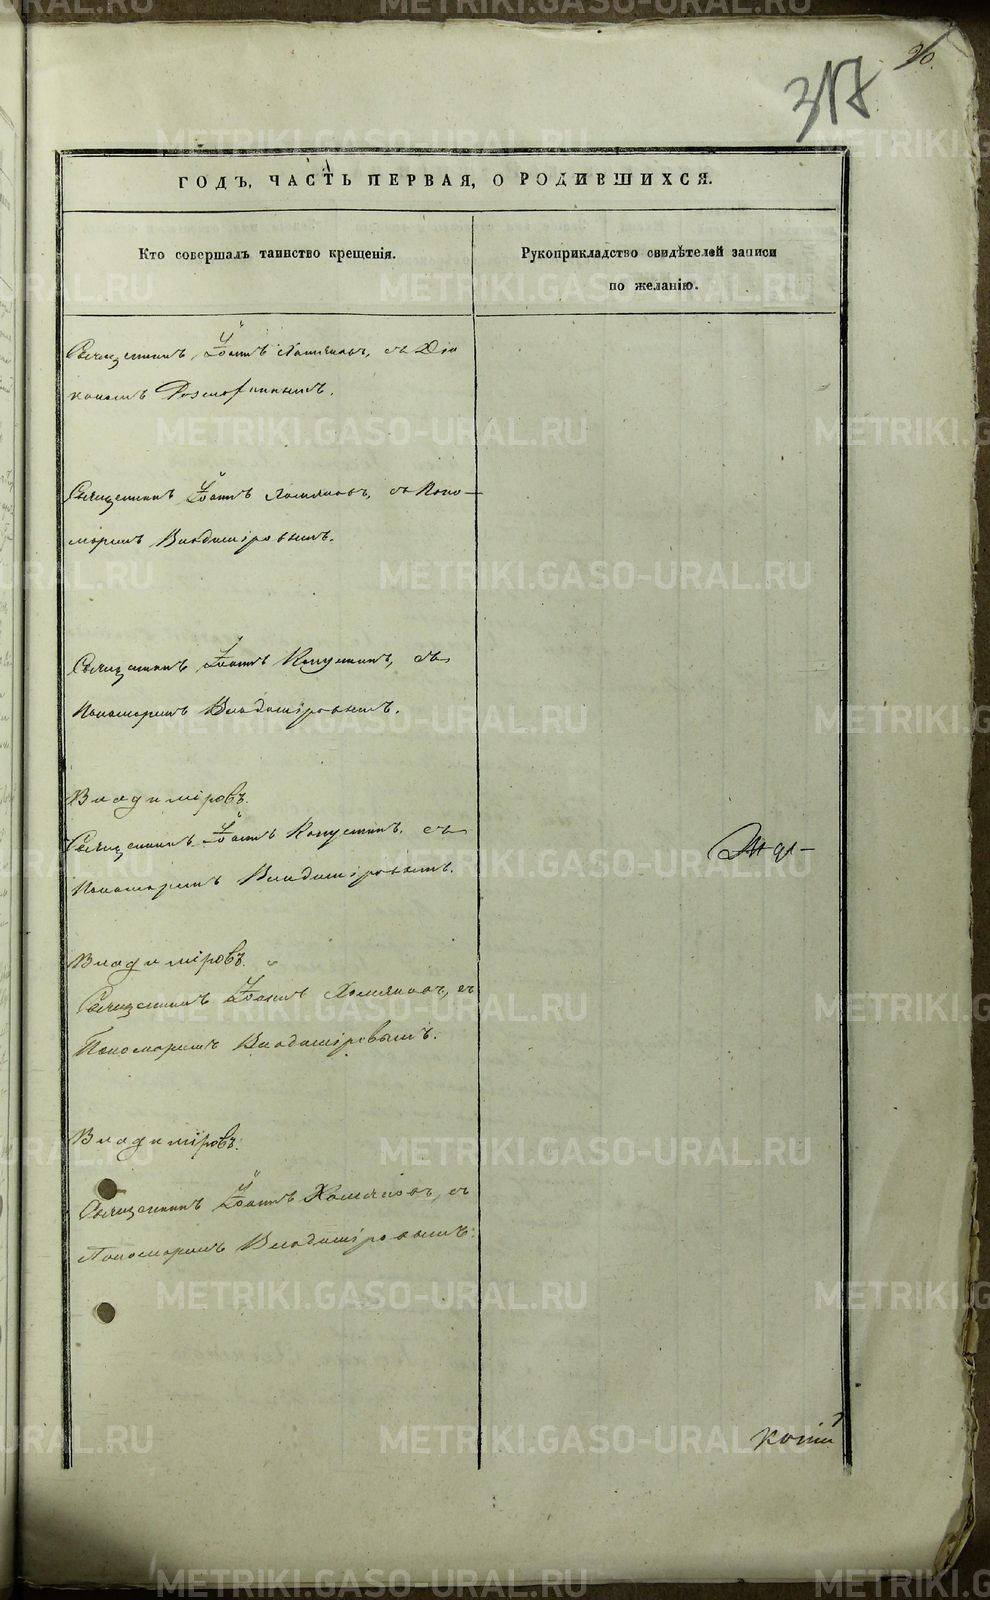 20.
317
ГОДЪ, ЧАСТЬ ПЕРВАЯ, О РОДИВШИХСЯ.
Кто совершалъ таинство крещенія.
Рукоприкладство свидѣтелей записи
по желанію.
Священникъ Іоаннъ Хомяковъ, съ Діа
кономъ
Священникъ Іоаннъ Хомяковъ, съ Поно-
маремъ Владиміровымъ.
Священникъ Іоаннъ Капустинъ, съ
Пономаремъ Владиміровымъ.
Владиміровъ.
Священникъ Іоаннъ Капустинъ, съ
Пономаремъ Владиміровымъ.
Владиміровъ.
Священникъ Іоаннъ Хомяковъ, съ
Пономаремъ Владиміровымъ.
Владиміровъ.
Священникъ Іоаннъ Хомяковъ, съ
Пономаремъ Владиміровымъ.
METRIKI.GASO-URAL.RU